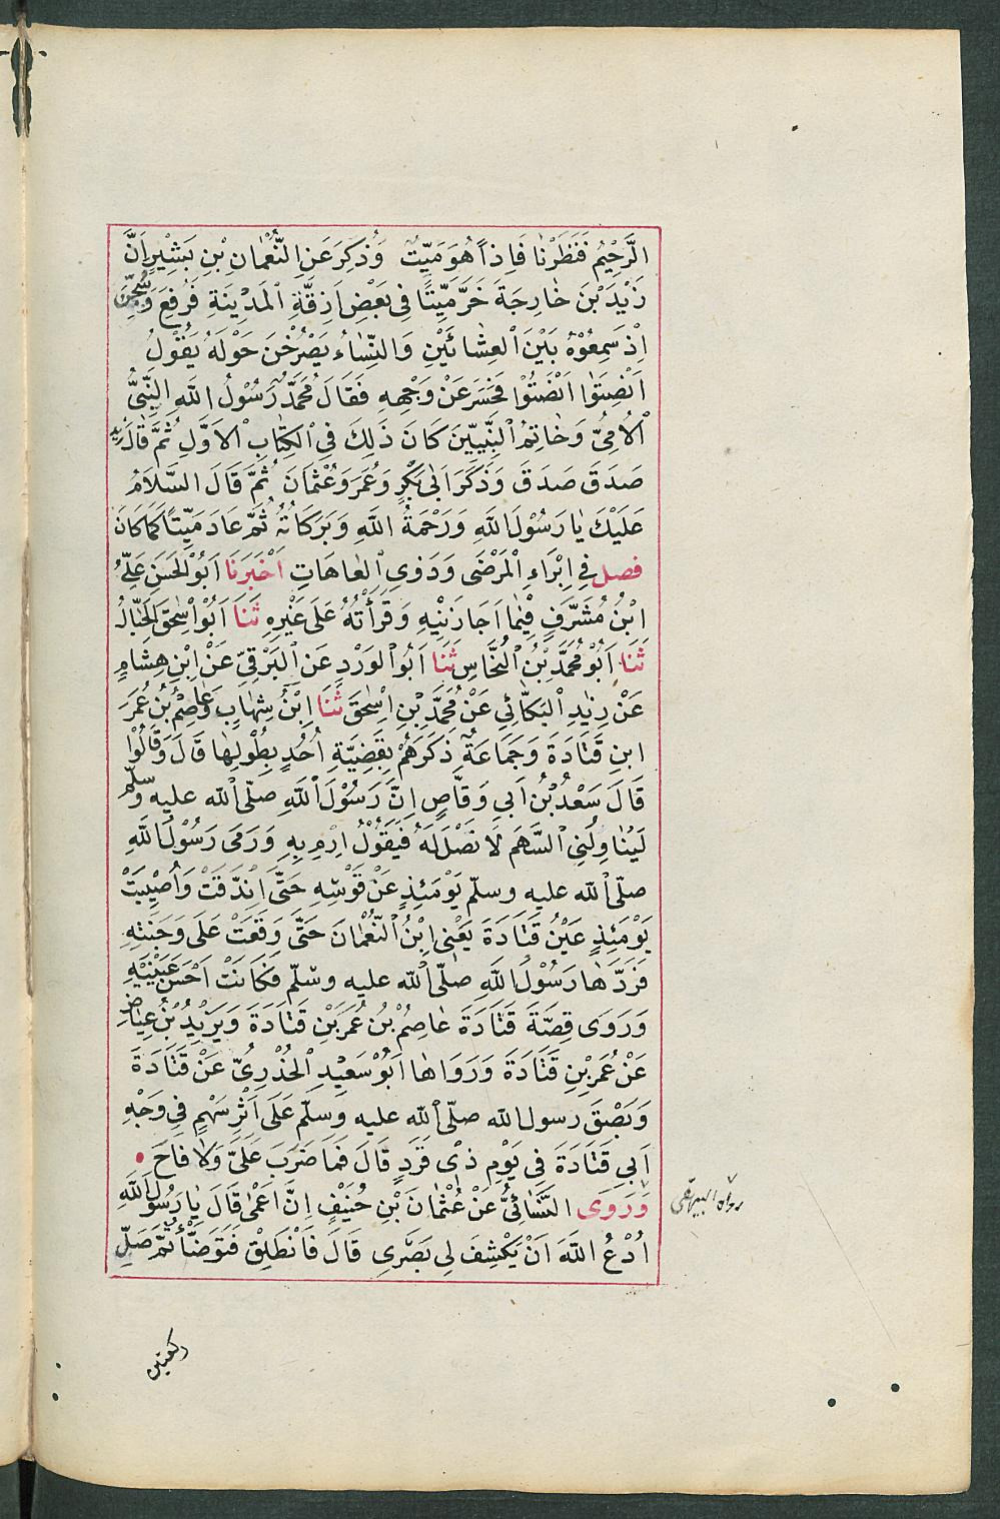 الرَّحِيْمُ فَنَظَرْنَا فَاِذاً هُوَ مَيِّتٌ وَذُكِرَ عَنِ النُّعْمَانِ بْنِ بَشِيْرٍ اَنَّ
زَيْدَ بْنَ خَارِجَةَ خَرَّ مَيِّتًا فِي بَعْضِ اَزِقَّةِ الْمَدِيْنَةِ فَرُفِعَ وَسُجِّيَ
اِذْ سَمِعُوْهُ بَيْنَ الْعِشَائَيْنِ وَالنِّسَاءُ يَصْرُخْنَ حَوْلَهُ يَقُوْلُ
اَنْصِتُوا اَنْصِتُوْا فَحَسَرَ عَنْ وَجْهِهِ فَقَالَ مُحَمَّدٌ رَسُوْلُ اللّٰهِ النَّبِيُّ
الْاُمِّيُّ وَخَاتِمُ النَّبِيِّينَ كَانَ ذَلِكَ فِي الْكِتَابِ الْاَوَّلِ ثُمَّ قَالَ زيد
صَدَقَ صَدَقَ وَذَكَرَ اَبَى بَكْرٍ وَعُمَرَ وَعُثْمَانَ ثُمَّ قَالَ السَّلَامُ
عَلَيْكَ يَا رَسُوْلَ اللّٰهِ وَرَحْمَةُ اللّٰهِ وَبَرَكَاتُهُ ثُمَّ عَادَ مَيِّتًا كَمَا كَانَ
فصل فِي اِبْرَاءِ الْمَرْضَى وَذَوِى الْعَاهَاتِ اَخْبَرَنَا اَبُوْ الْحَسَنِ عَلِيُّ
ابْنُ مُشَرَّفٍ فِيْمَا اَجَازَنِيْهِ وَقَرَأْتُهُ عَلَى غَيْرِهِ ثَنَا اَبُوْ اِسْحٰقَ الْحَبَّالُ
ثَنَا اَبُوْ مُحَمَّدِ بْنُ النَّحَّاسِ ثَنَا اَبُو الْوَرْدِ عَنِ الْبَرْقِيِّ عَنْ ابْنِ هِشَامٍ
عَنْ زِيَادِ الْبَكَّائِي عَنْ مُحَمَّدِ بْنِ اِسْحٰقَ ثَنَا ابْنُ شِهَابٍ وَعَاصِمُ بْنُ عُمَرَ
ابنِ قَتَادَةَ وَجَمَاعَةٌ ذَكَرَهُمْ بِقَضِيَّةِ اُحُدٍ بِطُوْلِهَا قَالَ وَقَالُوْا
قَالَ سَعْدُ بْنُ اَبِي وَقَّاصٍ اِنَّ رَسُوْلَ اللّٰهِ صلّى الله عليه وسلّم
لَيُنَاوِلُنِي السَّهْمَ لَا نَصْلَ لَهُ فَيَقُوْلُ ارْمِ بِهِ وَرَمَى رَسُوْلُ اللّٰهِ
صلّى الله عليه وسلّم يَوْمَئِذٍ عَنْ قَوْسِهِ حَتَّى اِنْدَقَّتْ وَاُصِيْبَتْ
يَوْمَئِذٍ عَيْنُ قَتَادَةَ يَعْنِى ابْنَ النُّعْمَانَ حَتَّى وَقَعَتْ عَلَى وَجْنَتِهِ
فَرَدَّهَا رَسُوْلُ اللّٰهِ صلّى الله عليه وسلّم فَكَانَتْ اَحْسَنَ عَيْنَيْهِ
وَرَوَى قِصَّةَ قَتَادَةَ عَاصِمُ بْنُ عُمَرَ بْنِ قَتَادَةَ وَيَزِيْدُ بْنُ عِيَاضٍ
عَنْ عُمَرَ بْنِ قَتَادَةَ وَرَوَاهَا اَبُوْ سَعِيْدِ الْخُدْرِيُّ عَنْ قَتَادَةَ
وَبَصَقَ رسول الله صلّى الله عليه وسلّم عَلَى اَثْرِ سَهْمٍ فِي وَجْهِ
اَبِي قَتَادَةَ فِي يَوْمِ ذِي قَرَدٍ قَالَ فَمَا ضَرَبَ عَلَيَّ وَلَا قَاحَ
وَرَوَى النَّسَائِيُّ عَنْ عُثْمَانَ بْنِ حُنَيْفٍ اِنَّ اَعْمٰى قَالَ يَا رَسُوْلَ اللّٰهِ
اُدْعُ اللّٰهَ اَنْ يَكْشِفَ لِي بَصَرِى قَالَ فَانْطَلِقْ فَتَوَضَّأْ ثُمَّ صَلِّ
رواه البيهقى
ركعتين